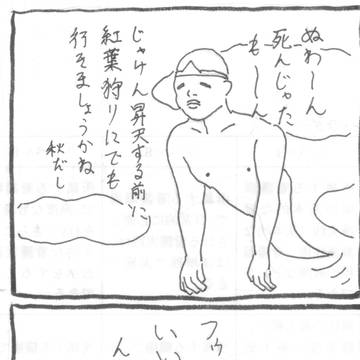 ぬわーん
死んじゃた
もーん
じゃけん昇天する前に
紅葉狩りにでも
行そましょうかね
秋だし
フゥ
いい
ん